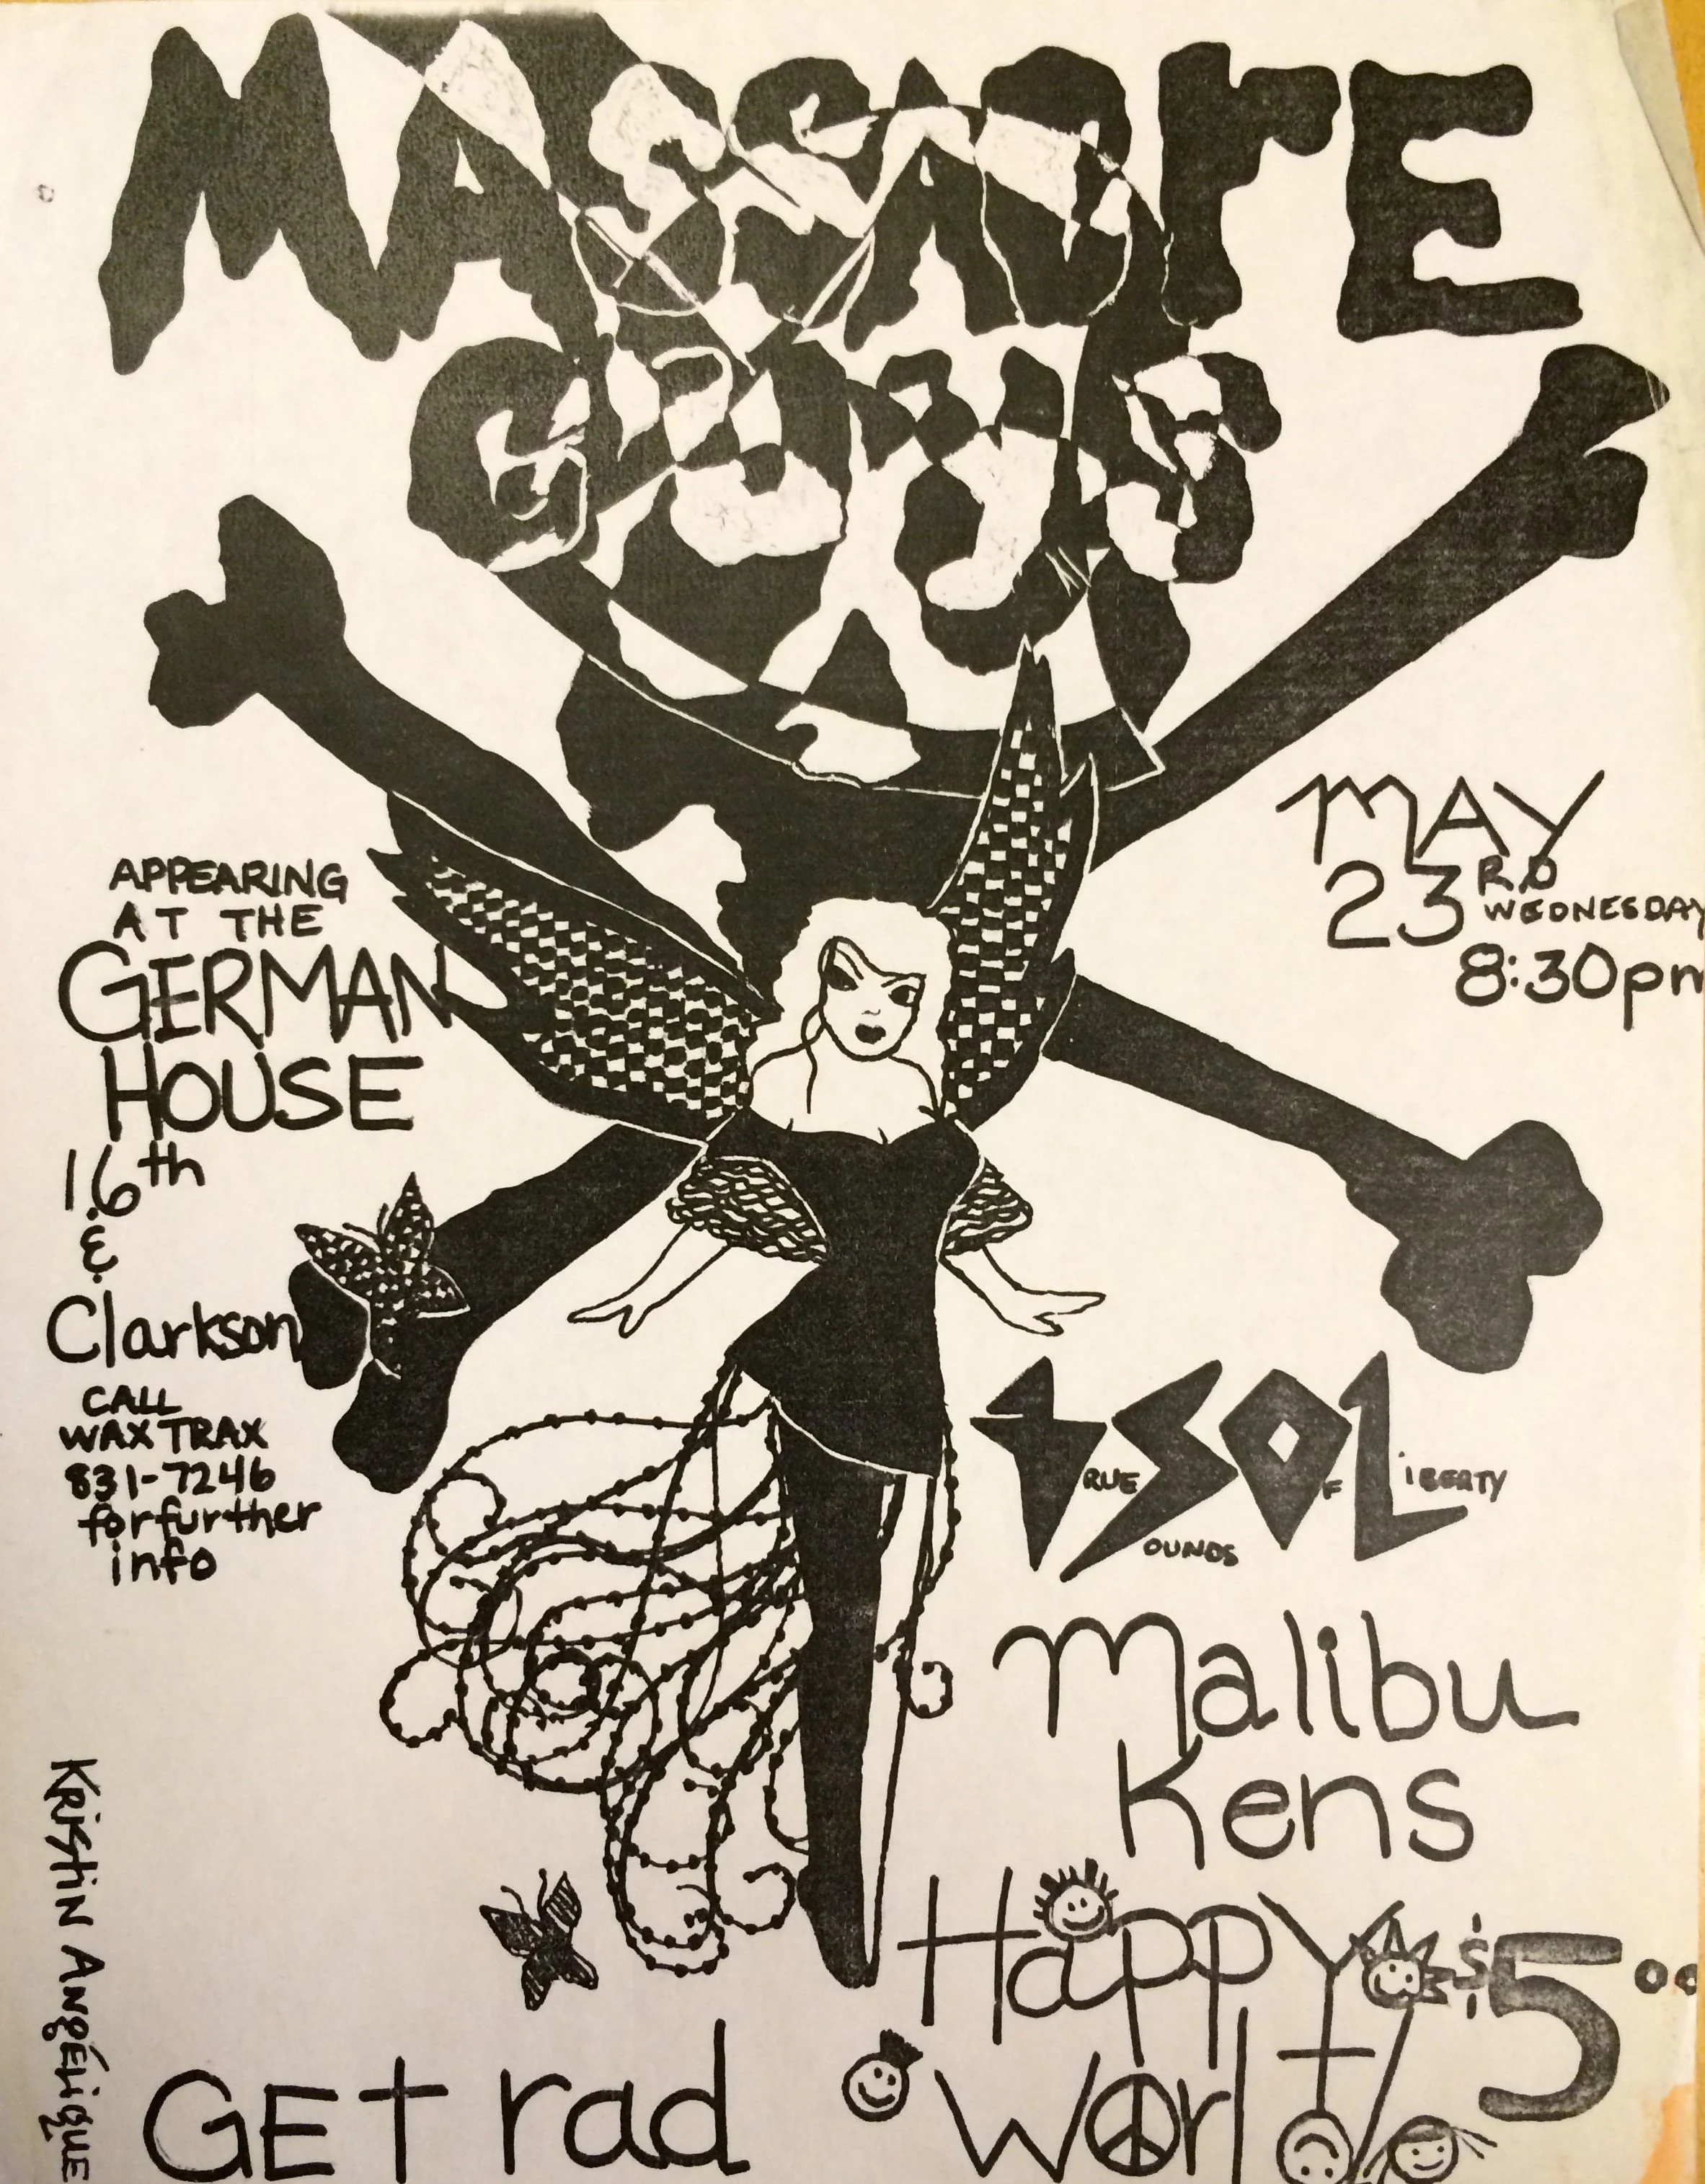 MASSACrE
GUYS
APPEARING
AT THE
GERMAN
HOUSE
16th
&
Clarkson
CALL
WAX TRAX
831-7246
for further
info
MAY
23RD
WEDNESDAY
8:30pm
tSOL
RUE OUNDS F iBERTY
Malibu
Kens
Happy
World
$5.00
GEt rad
KRistiN ANgÉLiqUE